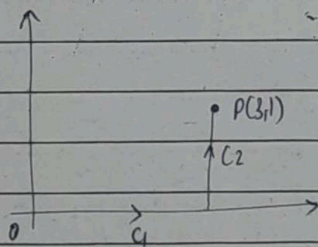 P(3,1)
C2
0
C1